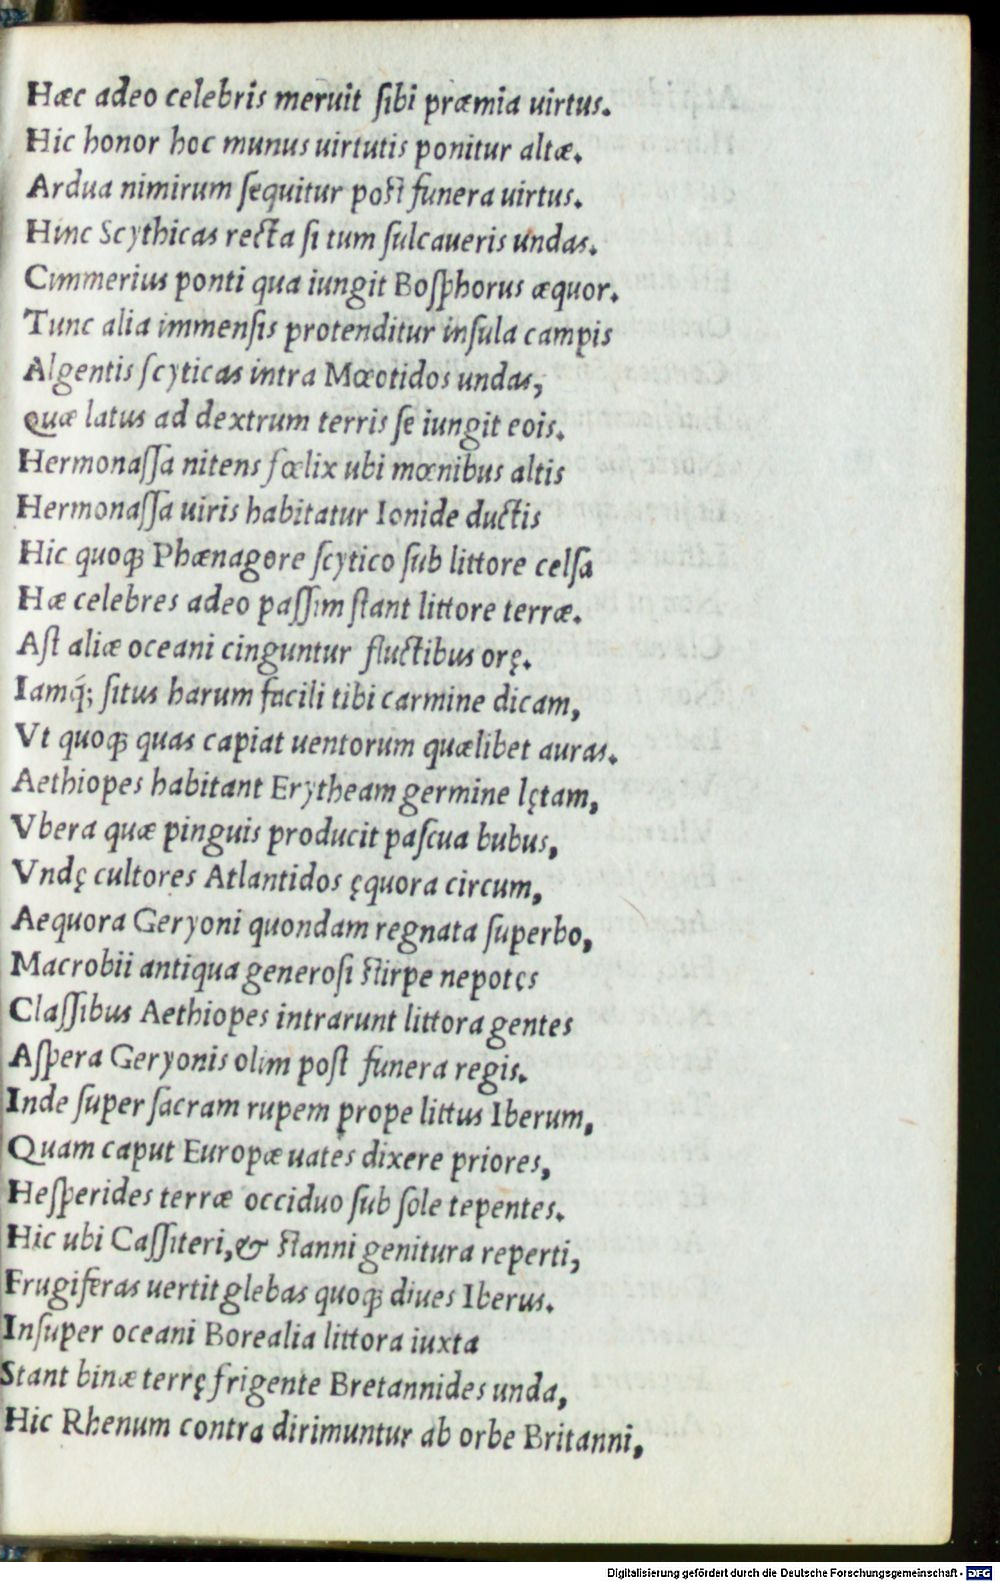 Hæc adeo celebris meruit ſibi præmia uirtus.
Hic honor hoc munus uirtutis ponitur altæ.
Ardua nimirum ſequitur poſt funera uirtus.
Hinc Scythicas recta ſi tum ſulcaueris undas.
Cimmerius ponti qua iungit Boſphorus æquor.
Tunc alia immenſis protenditur inſula campis
Algentis ſcyticas intra Mœotidos undas,
Quæ latus ad dextrum terris ſe iungit eois.
Hermonaſſa nitens fœlix ubi mœnibus altis
Hermonaſſa uiris habitatur Ionide ductis
Hic quoqꝫ Phænagore ſcytico ſub littore celſa
Hæ celebres adeo paſſim ſtant littore terræ.
Aſt aliæ oceani cinguntur fluctibus orę.
Iamq́; ſitus harum facili tibi carmine dicam,
Vt quoqꝫ quas capiat uentorum quælibet auras.
Aethiopes habitant Erytheam germine lętam,
Vbera quæ pinguis producit paſcua bubus,
Vndę cultores Atlantidos ęquora circum,
Aequora Geryoni quondam regnata ſuperbo,
Macrobii antiqua generoſi ſtirpe nepotes
Claſſibus Aethiopes intrarunt littora gentes
Aſpera Geryonis olim poſt funera regis.
Inde ſuper ſacram rupem prope littus Iberum,
Quam caput Europæ uates dixere priores,
Heſperides terræ occiduo ſub ſole tepentes.
Hic ubi Caſſiteri, & ſtanni genitura reperti,
Frugiferas uertit glebas quoqꝫ diues Iberus.
Inſuper oceani Borealia littora iuxta
Stant binæ terrę frigente Bretannides unda,
Hic Rhenum contra dirimuntur ab orbe Britanni,
Digitalisierung gefördert durch die Deutsche Forschungsgemeinschaft - DFG